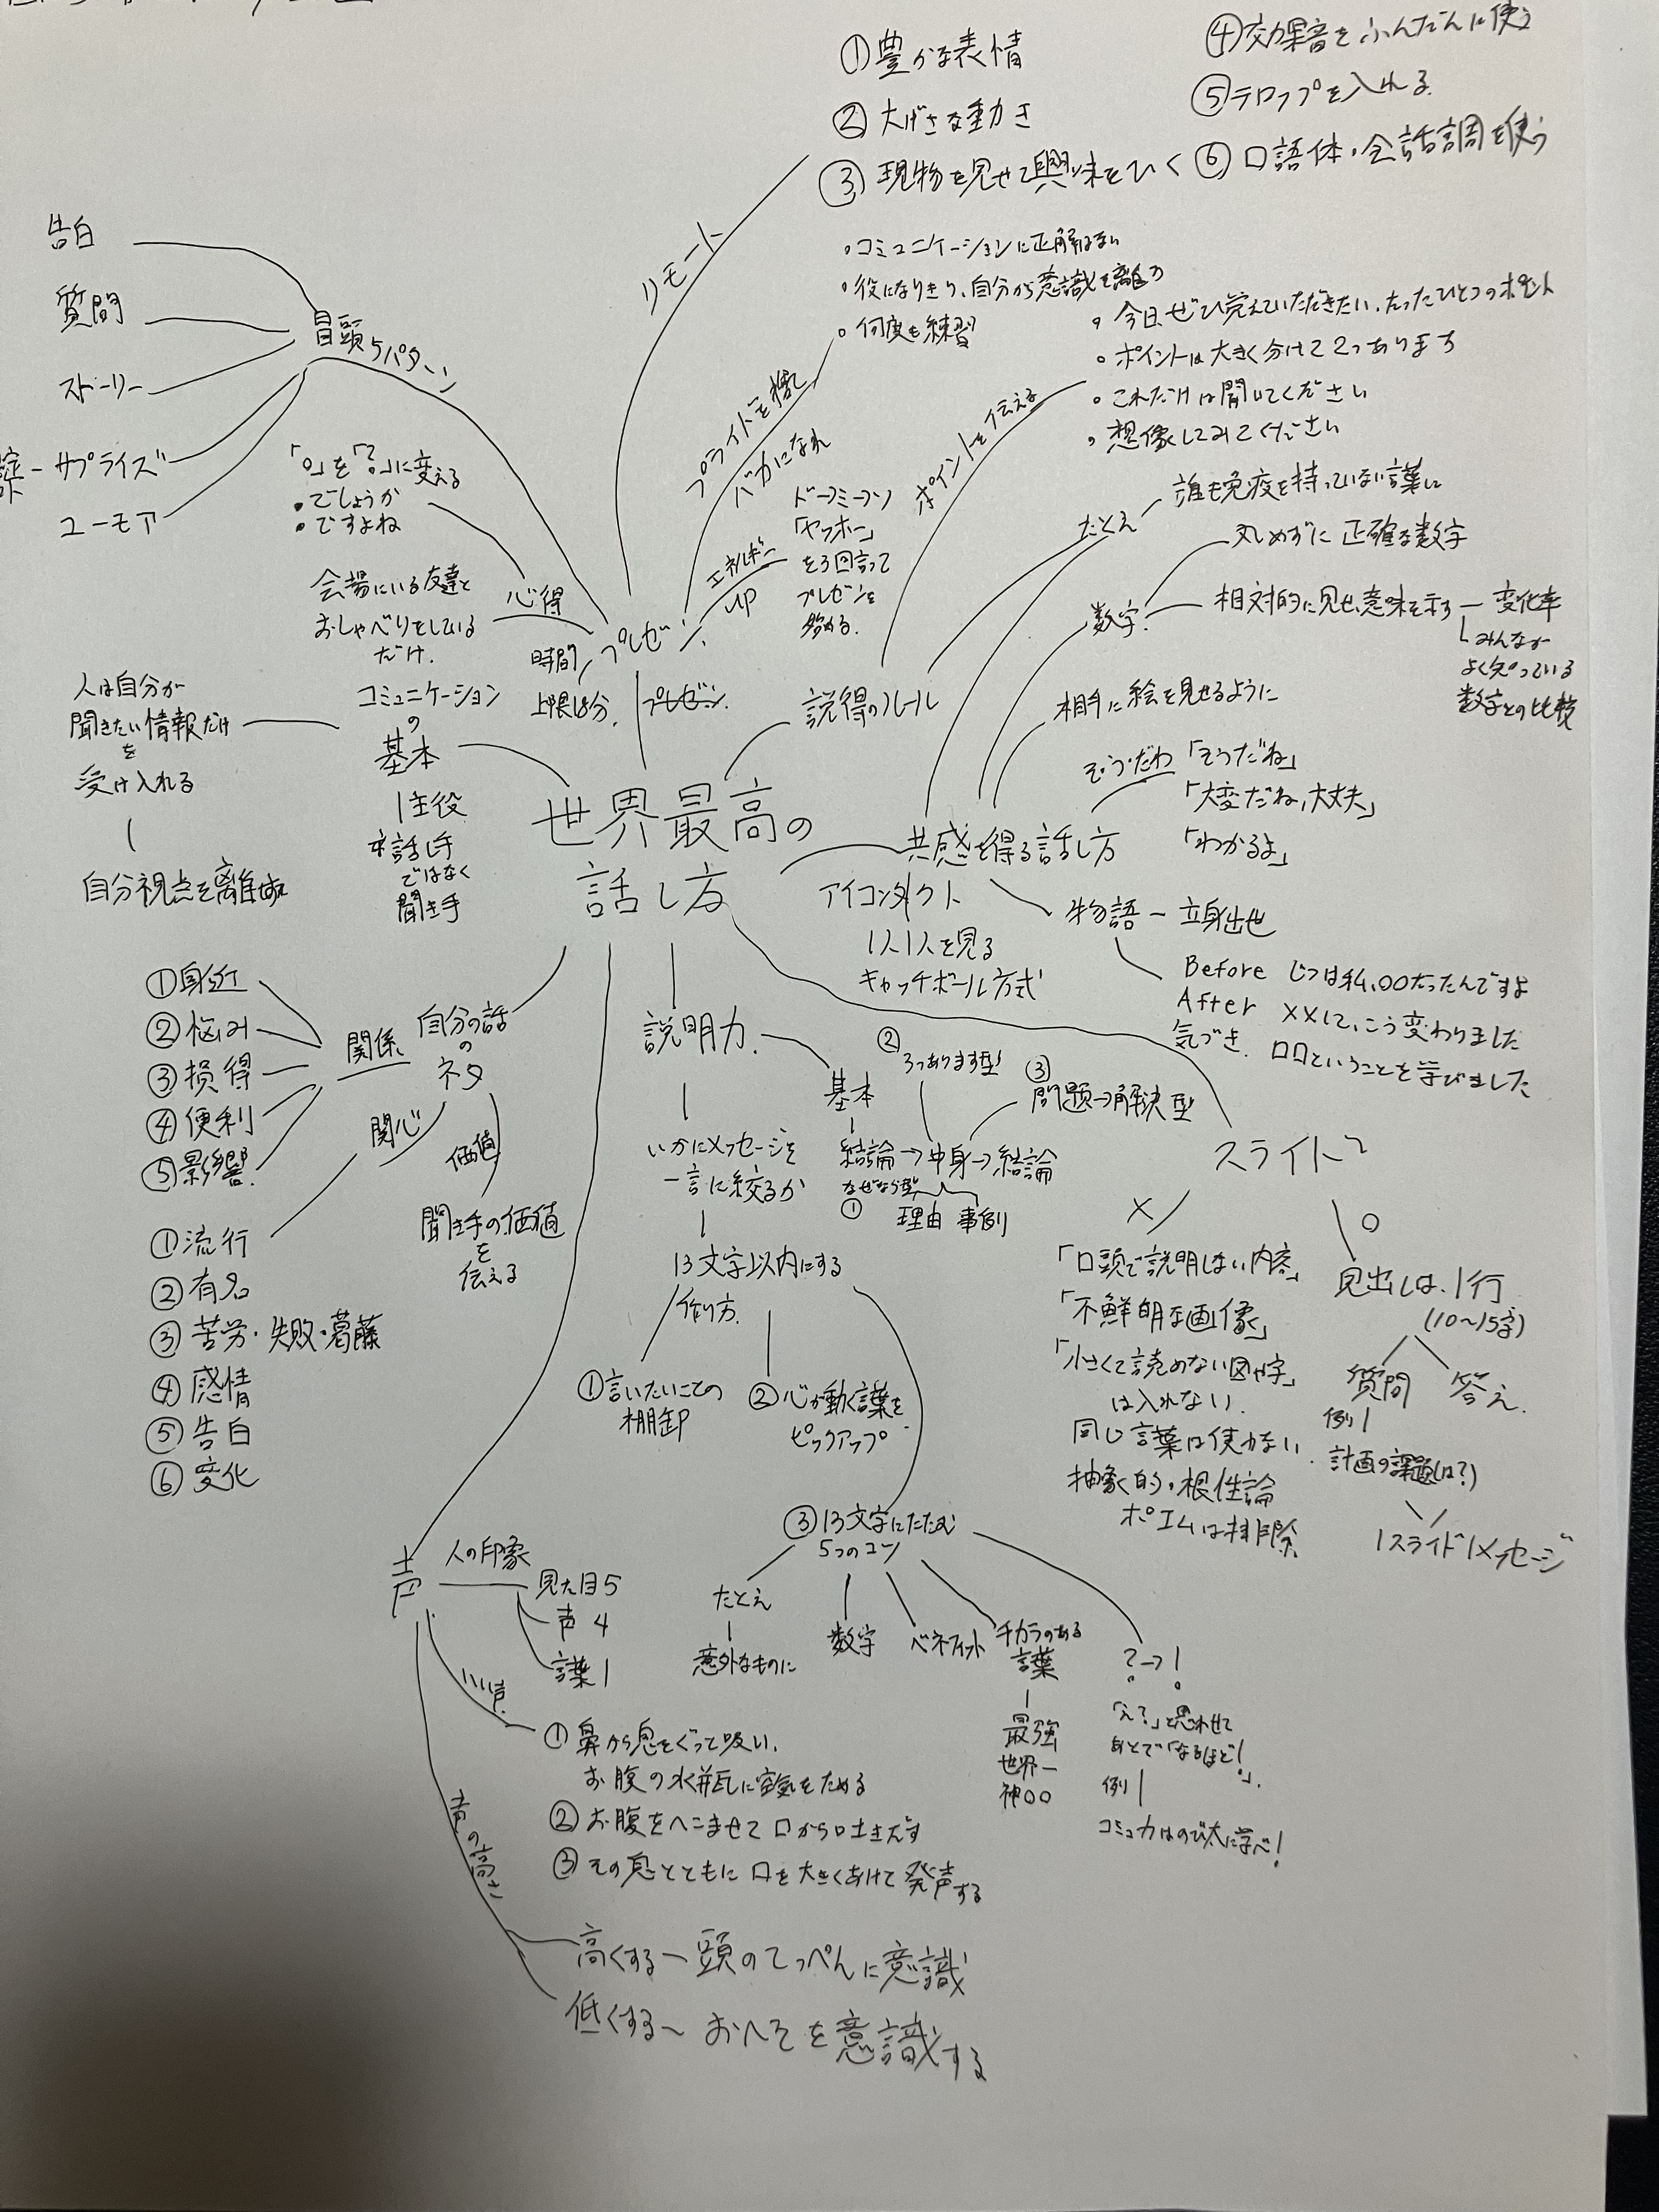 ①豊かな表情
②大げさな動き
③現物を見せて興味をひく
④効果音をふんだんに使う
⑤テロップを入れる
⑥口語体・会話調を使う
リモート
告白
質問
ストーリー
サプライズ
ユーモア
冒頭5パターン
・コミュニケーションに正解はない
・役になりきり、自分から意識を離す
・何度も練習
プライドを捨て
バカになれ
・今日、ぜひ覚えていただきたい、たったひとつのポイント
・ポイントは大きく分けて2つあります
・これだけは聞いてください
・想像してみてください
ポイントを伝える
「。」を「?」に変える
・でしょうか
・ですよね
心得
会場にいる友達と
おしゃべりをしている
だけ.
エネルギー
UP
ドーミーソ
「ヤッホー」
を3回言って
プレゼンを
始める.
プレゼン
時間
上限18分.
プレゼン
たとえ
誰も免疫を持っていない言葉に
数字
丸めずに正確な数字
相対的に見せ、意味を示す
変化率
みんなが
よく知っている
数字との比較
相手に絵を見せるように
説得のルール
コミュニケーション
の
基本
人は自分が
聞きたい情報だけ
を
受け入れる
自分視点を離れ
主役
は話し手
ではなく
聞き手
世界最高の
話し方
共感を得る話し方
そ・う・だわ
「そうだね」
「大変だね,大丈夫」
「わかるよ」
アイコンタクト
1人1人を見る
キャッチボール方式
物語
立身出世
Before じつは私、〇〇だったんですよ
After ××して、こう変わりました
気づき. 口口ということを学びました
自分の話
の
ネタ
関係
①身近
②悩み
③損得
④便利
⑤影響
関心
①流行
②有名
③苦労・失敗・葛藤
④感情
⑤告白
⑥変化
価値
聞き手の価値
を
伝える
説明力
基本
②
3つあります型
③
問題→解決型
結論→中身→結論
なぜなら型
①
理由 事例
いかにメッセージを
一言に絞るか
13文字以内にする
作り方.
①言いたいことの
棚卸
②心が動く言葉を
ピックアップ
③13文字にたたむ
5つのコツ
たとえ
意外なものに
数字
ベネフィット
チカラのある
言葉
最強
世界一
神〇〇
?→!
「え?」と思わせて
あとで「なるほど!」.
例
コミュ力はのび太に学べ!
スライド
×
「口頭で説明しない内容」
「不鮮明な画像」
「小さくて読めない図や字」
は入れない.
同じ言葉は使わない.
抽象的・根性論
ポエムは排除
〇
見出しは、1行
(10~15字)
質問
答え.
例
計画の課題は?)
1スライド1メッセージ
声
人の印象
見た目5
声 4
言葉1
いい声
①鼻から息をぐって吸い.
お腹の水瓶に空気をためる
②お腹をへこませて口から吐きだす
③その息とともに口を大きくあけて発声する
声の高さ
高くする－頭のてっぺんに意識
低くする～おへそを意識する